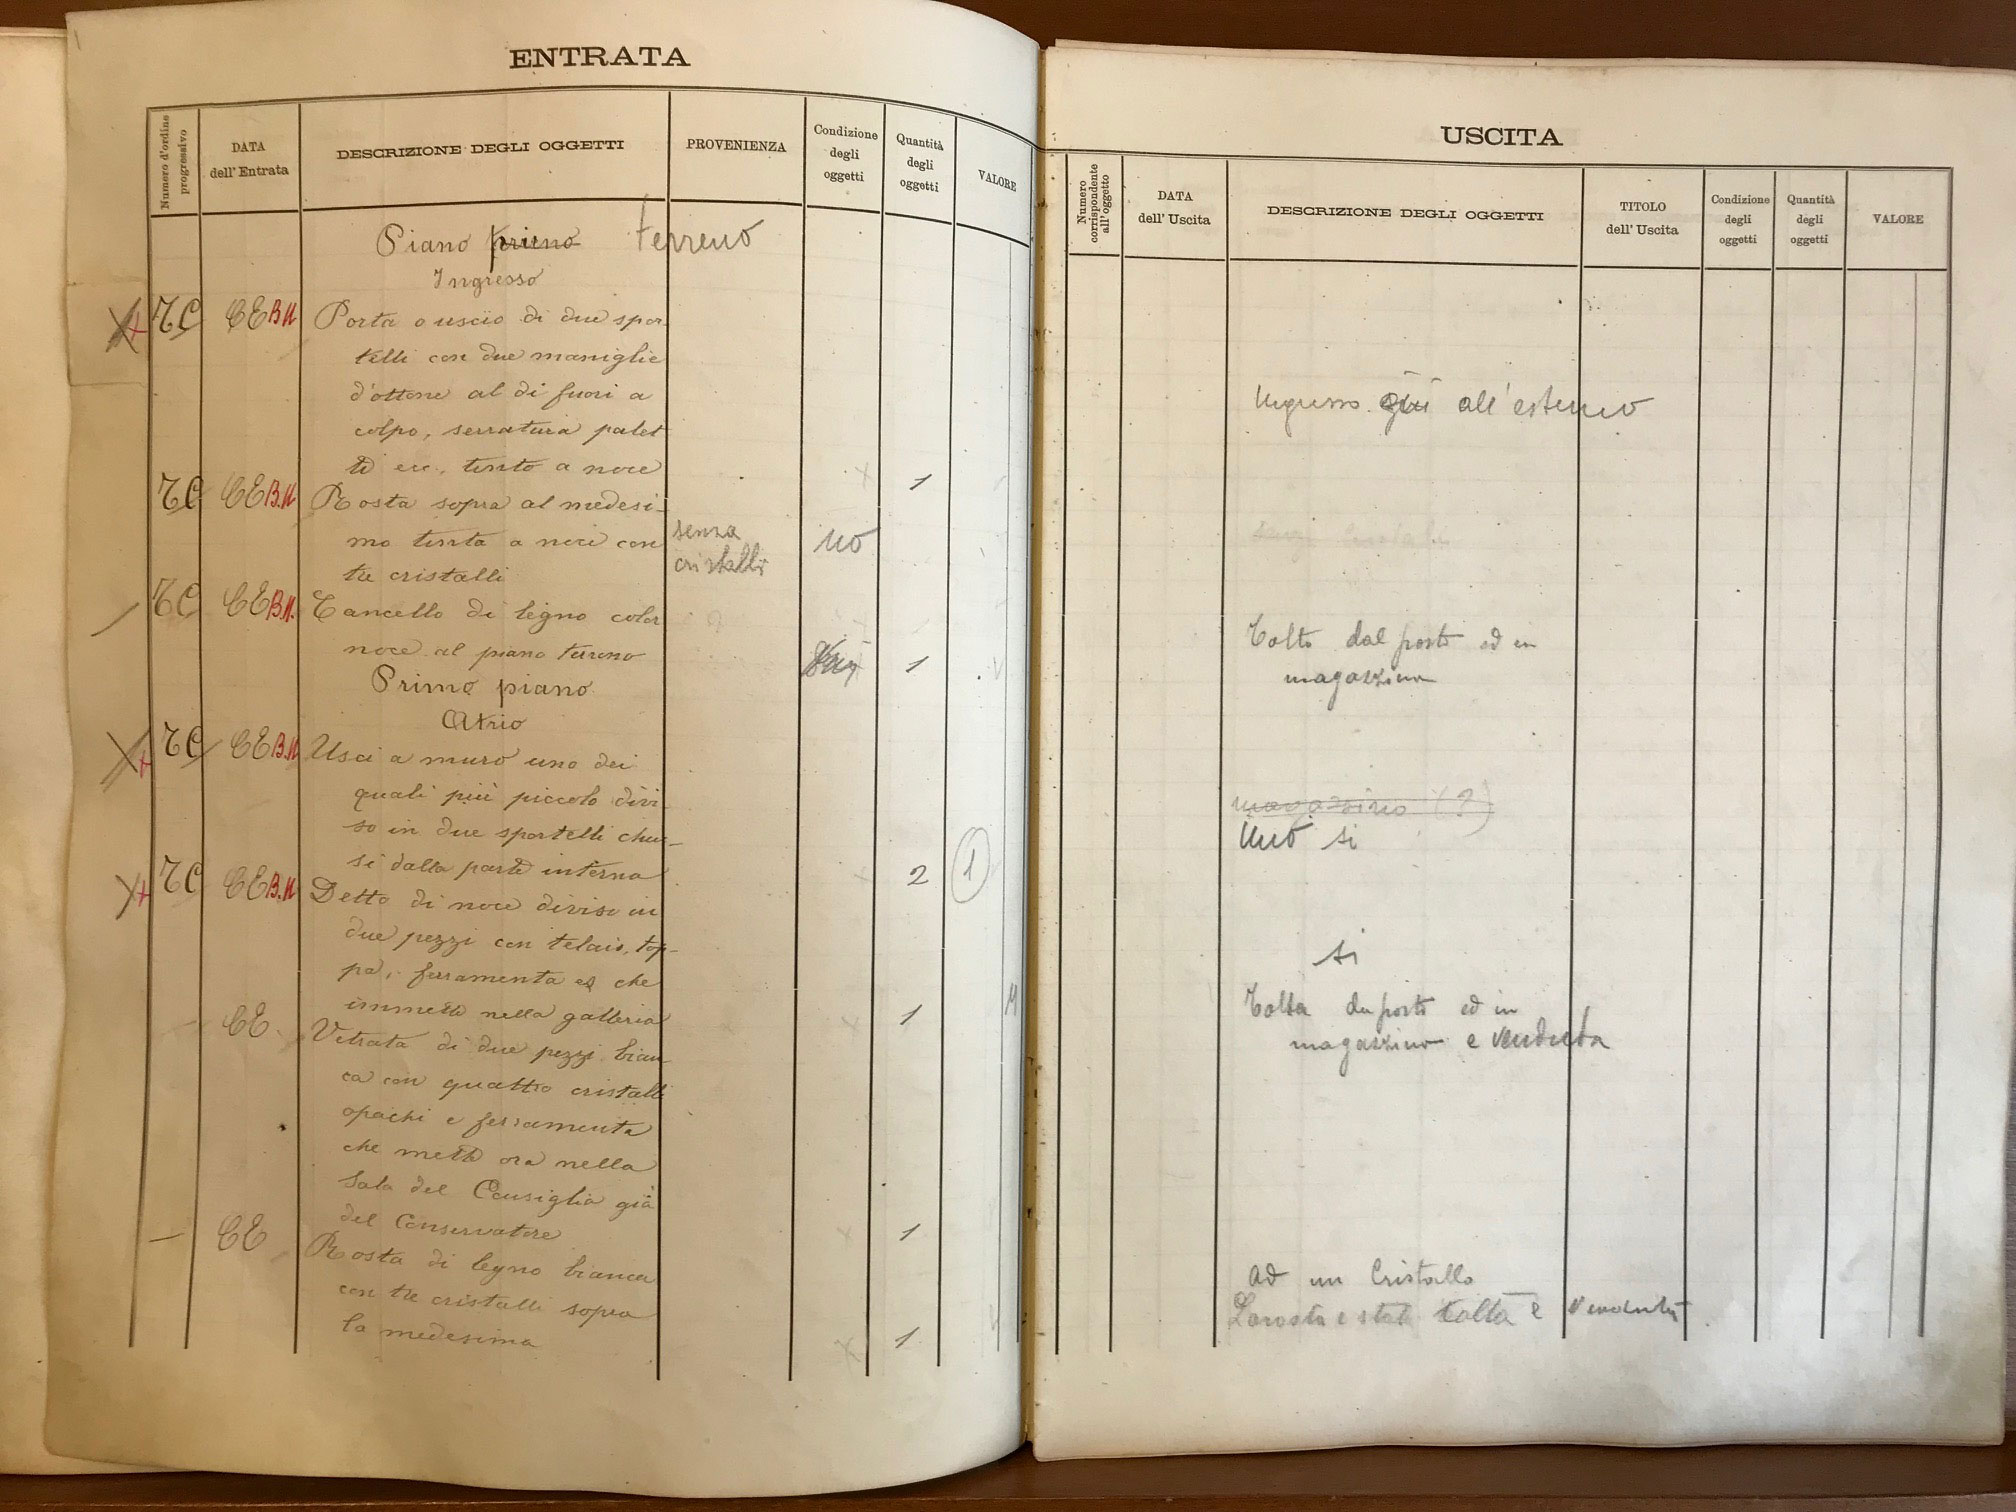 ENTRATA
Numero d'ordine progressivo
DATA dell'Entrata
DESCRIZIONE DEGLI OGGETTI
PROVENIENZA
Condizione degli oggetti
Quantità degli oggetti
VALORE
Piano primo terreno
Ingresso
TC CE B.N. Porta o uscio di due spor-
telli con due maniglie
d'ottone al di fuori a
colpo, serratura palet
ti ecc., tinto a noce 1
TC CE B.N. Rosta sopra al medesi-
mo tinta a noce con senza no
tre cristalli cristalli
TC CE B.N. Cancello di legno color
noce al piano terreno 1
Primo piano
Atrio
TC CE B.N. Usci a muro uno dei
quali più piccolo divi-
so in due sportelli chiu-
si dalla parte interna 2 1
TC CE B.N. Detto di noce diviso in
due pezzi con telaio, top-
pa, ferramenta e che
immette nella galleria 1
CE Vetrata di due pezzi bian
ca con quattro cristalli
opachi e ferramenta
che mette ora nella
Sala del Consiglio già
del Conservatore 1
CE Rosta di legno bianca
con tre cristalli sopra
la medesima 1
USCITA
Numero corrispondente all'oggetto
DATA dell'Uscita
DESCRIZIONE DEGLI OGGETTI
TITOLO dell'Uscita
Condizione degli oggetti
Quantità degli oggetti
VALORE
Ingresso già all'esterno
Tolto dal posto ed in
magazzino
magazzino (?)
Uno si
si
Tolta da posto ed in
magazzino e venduta
ad un Cristallo
La rosta è stata tolta e venduta